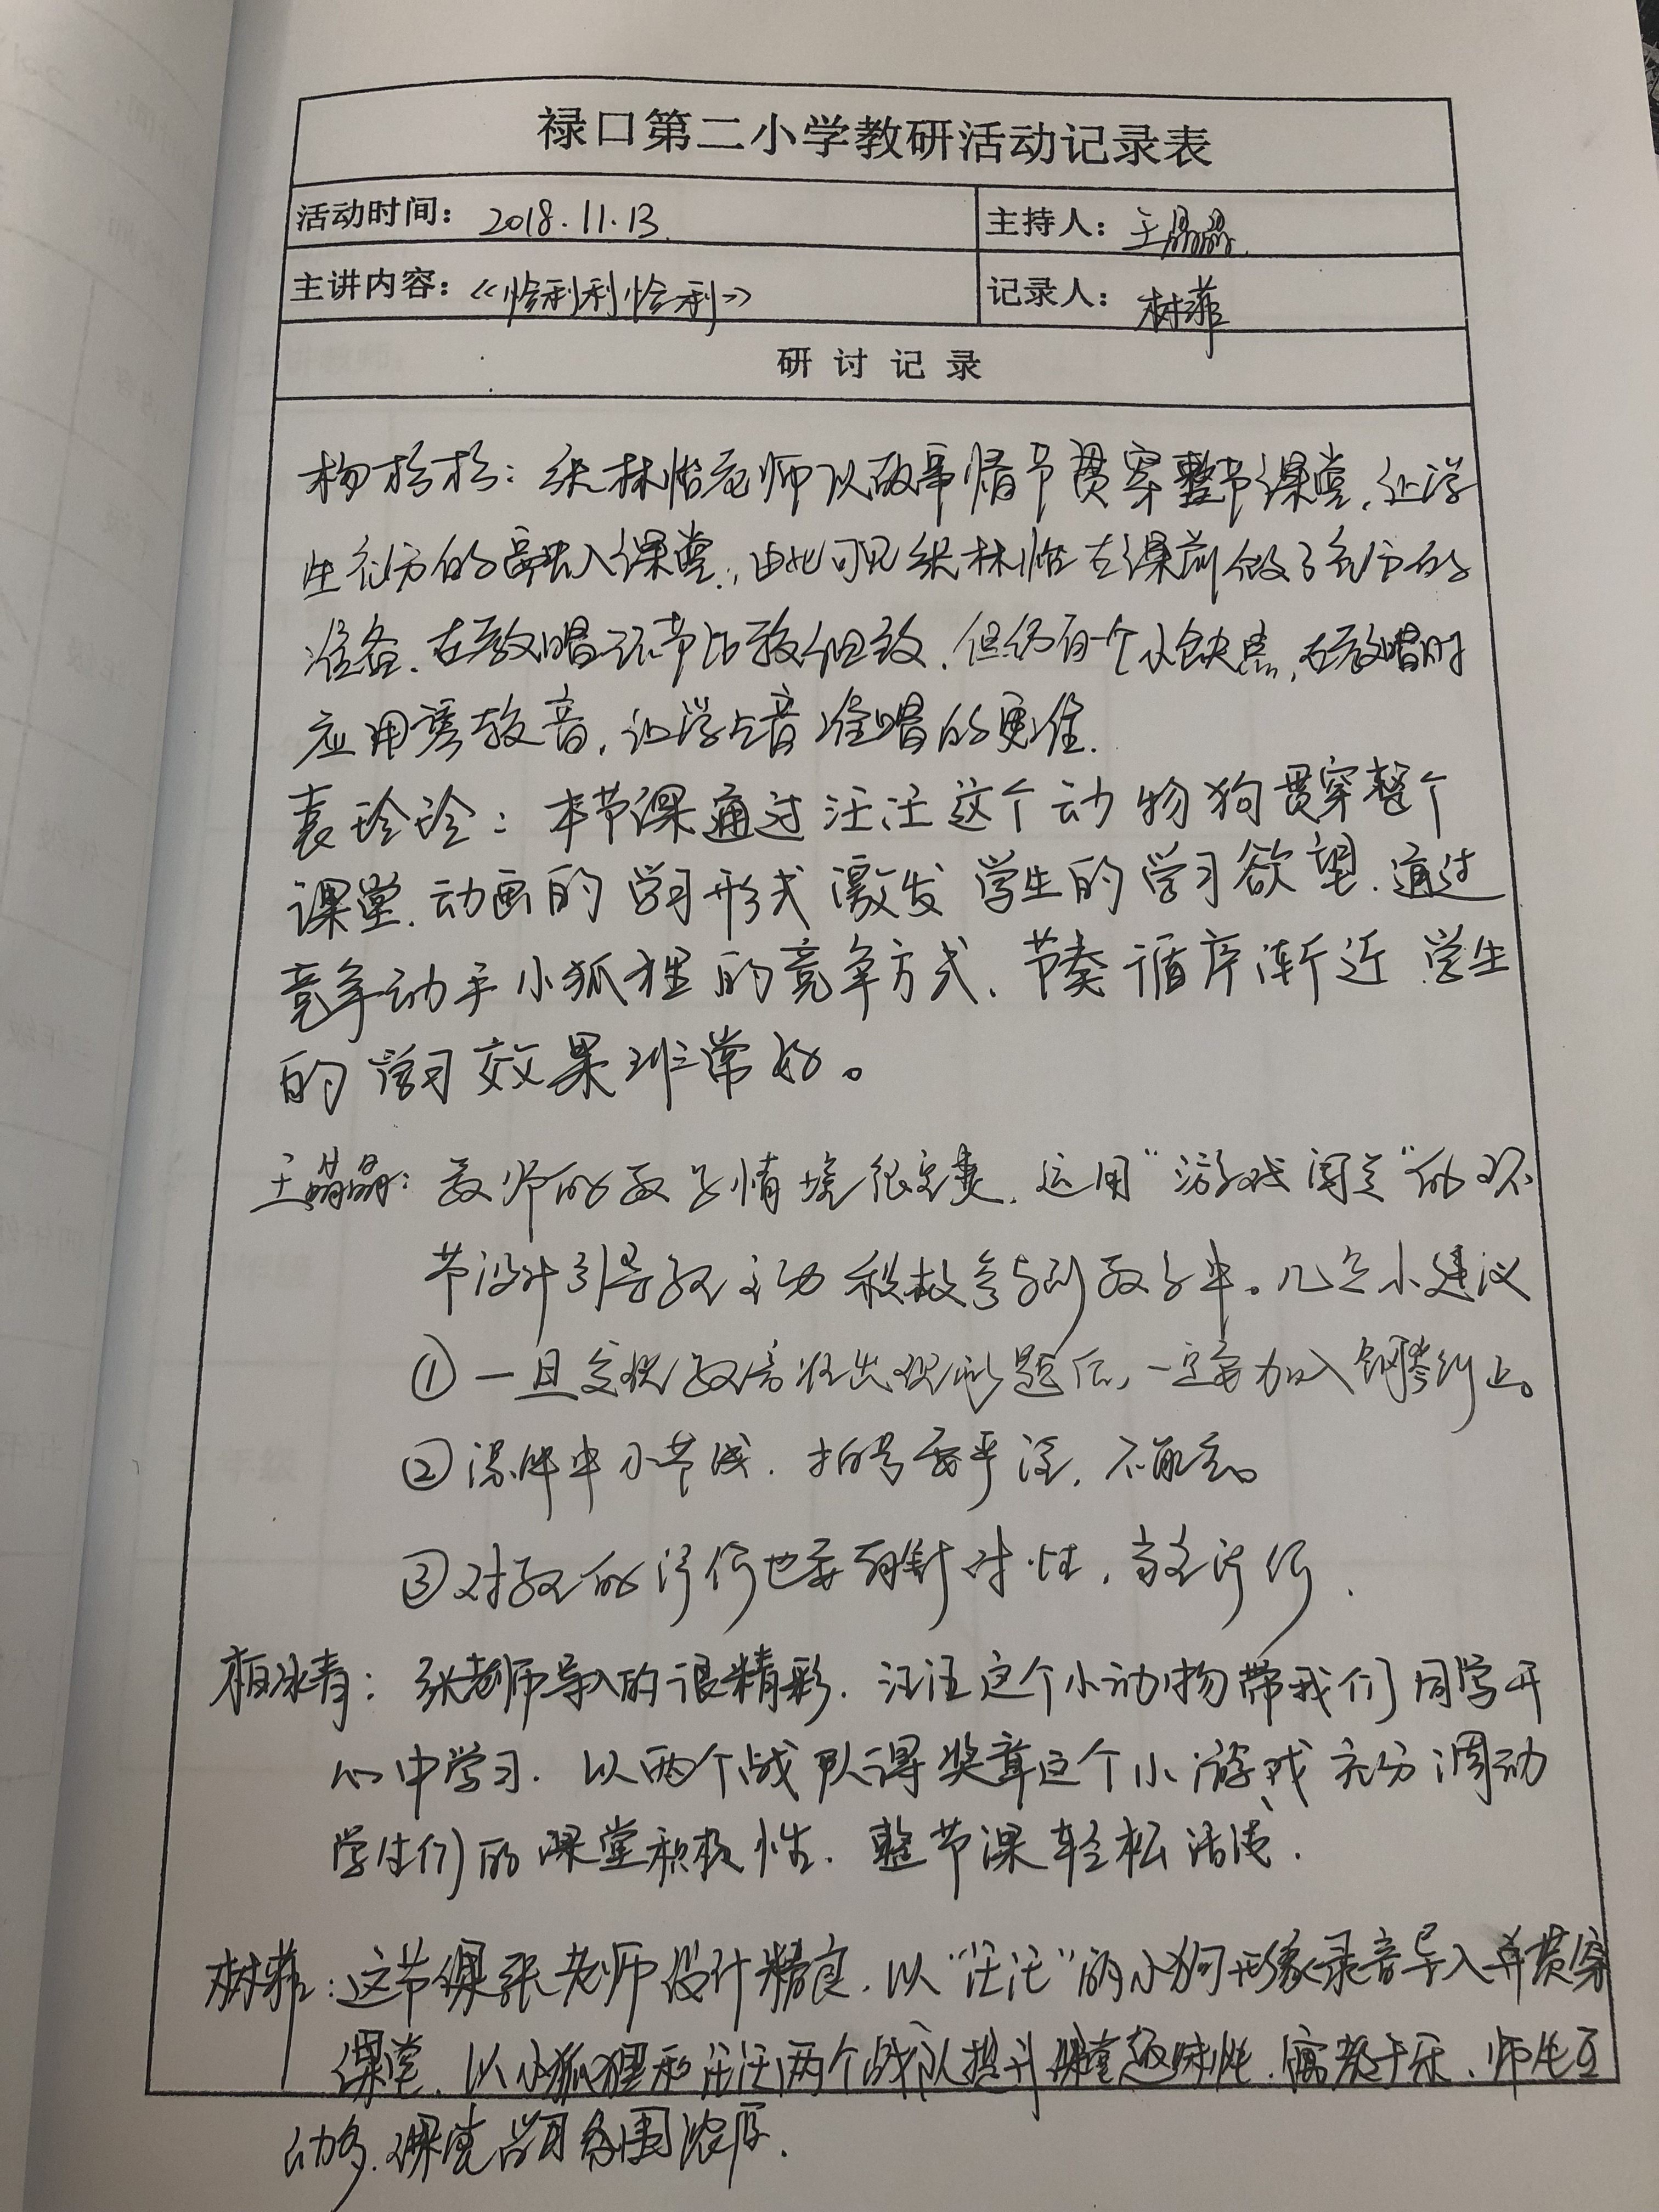 禄口第二小学教研活动记录表
活动时间：2018.11.13. 主持人：王晶晶.
主讲内容：《恰利利恰利》 记录人：林菲
研讨记录
杨杉杉：张林怡老师以故事情节贯穿整节课堂，让学
生充分的融入课堂，由此可见张林怡在课前做了充分的
准备.在教唱环节比较细致.但仍有一个小缺点,在教唱时
应用琴较音,让学生音准唱的更准.
袁玲玲：本节课通过汪汪这个动物狗贯穿整个
课堂.动画的学习形式激发学生的学习欲望.通过
竞争动手小狐狸的竞争方式、节奏循序渐近 学生
的学习效果非常好。
王晶晶：教师的教学情境很完美.运用“游戏闯关”的环
节设计引导孩子主动积极参与到教学中。几点小建议
①一旦发现教音准出现问题后,一定要加入钢琴纠正。
②课件中小节线.拍号要严谨,不能忘。
③对孩子的评价也要有针对性,多元评价.
柏冰青：张老师导入的很精彩.汪汪这个小动物带我们同学开
心中学习.以两个战队得奖章这个小游戏充分调动
学生们的课堂积极性.整节课轻松活泼.
林菲：这节课张老师设计精良.以“汪汪”的小狗形象录音导入并贯穿
课堂.以小狐狸和汪汪两个战队提升课堂趣味性.寓教于乐、师生互
动多.课堂学习氛围浓厚.